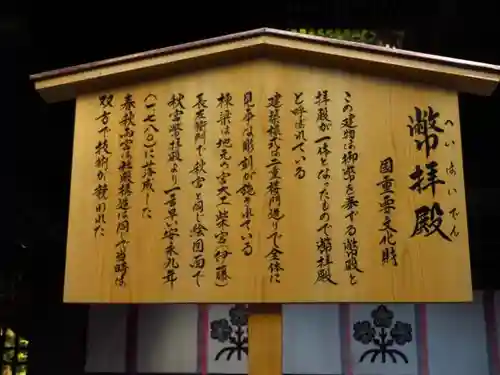 幣拝殿
へいはいでん
国重要文化財
この建物は御幣を奉でる幣殿と
拝殿が一体となったもので幣拝殿
と呼ばれている
建築様式は二重楼門造りで全体に
見事な彫刻が施されている
棟梁は地元の宮大工柴宮(伊藤)
長左衛門で秋宮と同じ絵図面で
秋宮幣拝殿より一年早い安永九年
(一七八〇)に落成した
春秋両宮は社殿構造は同じで当時は
双方で技術が競われた